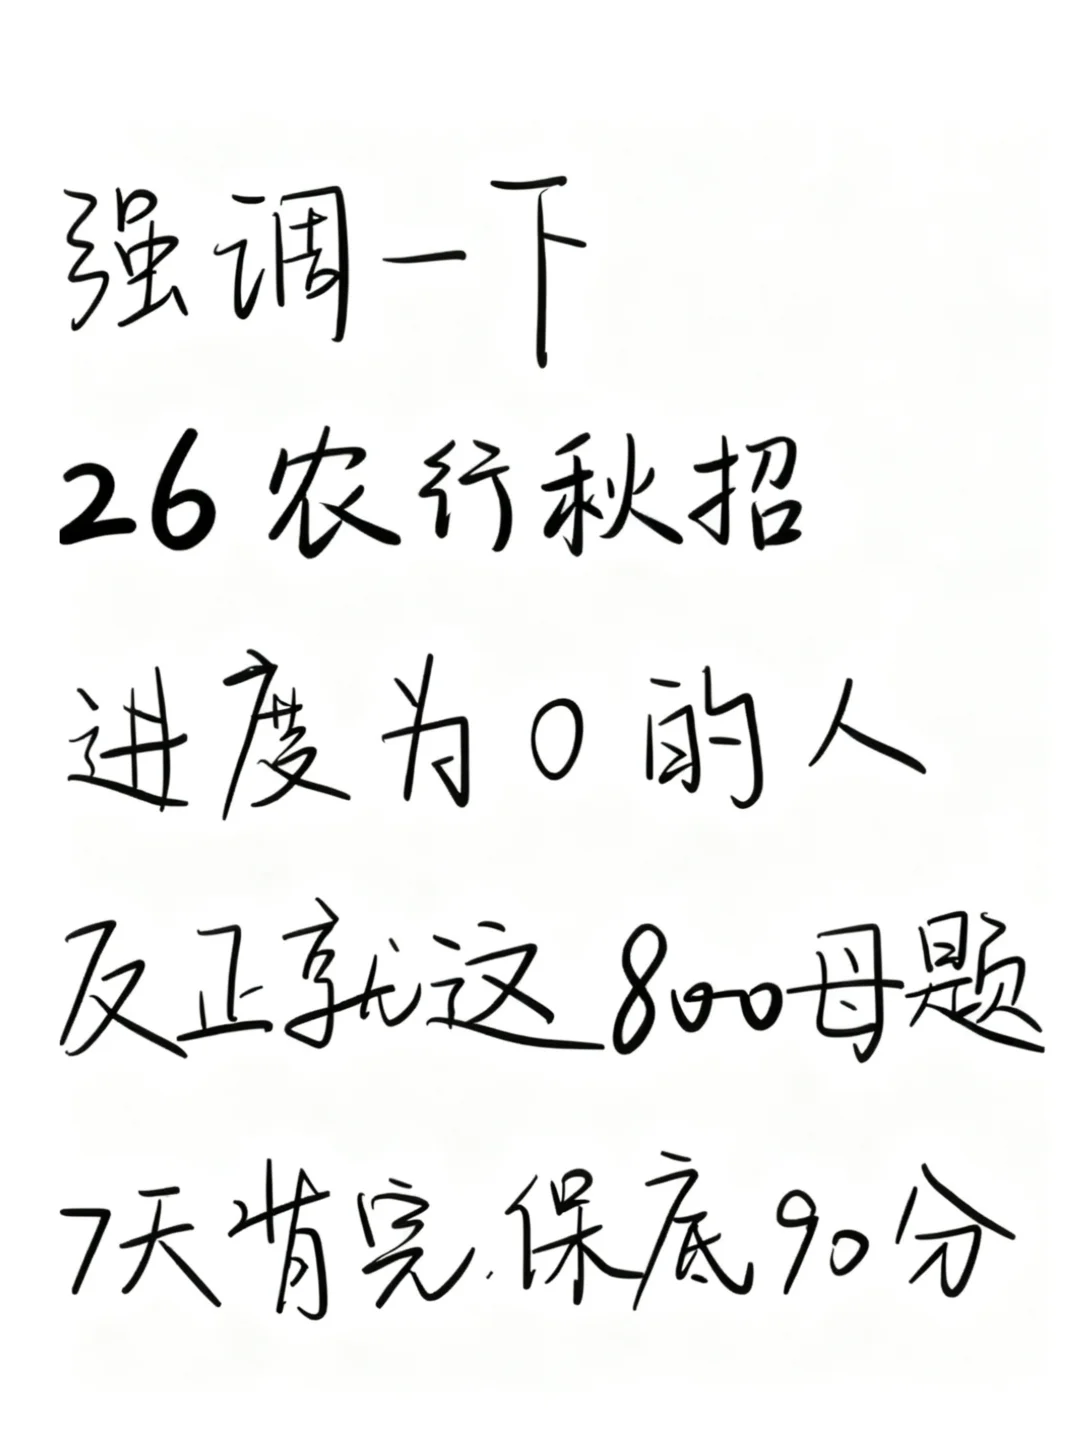 强调一下
26农行秋招
进度为0的人
反正就这800母题
7天背完.保底90分